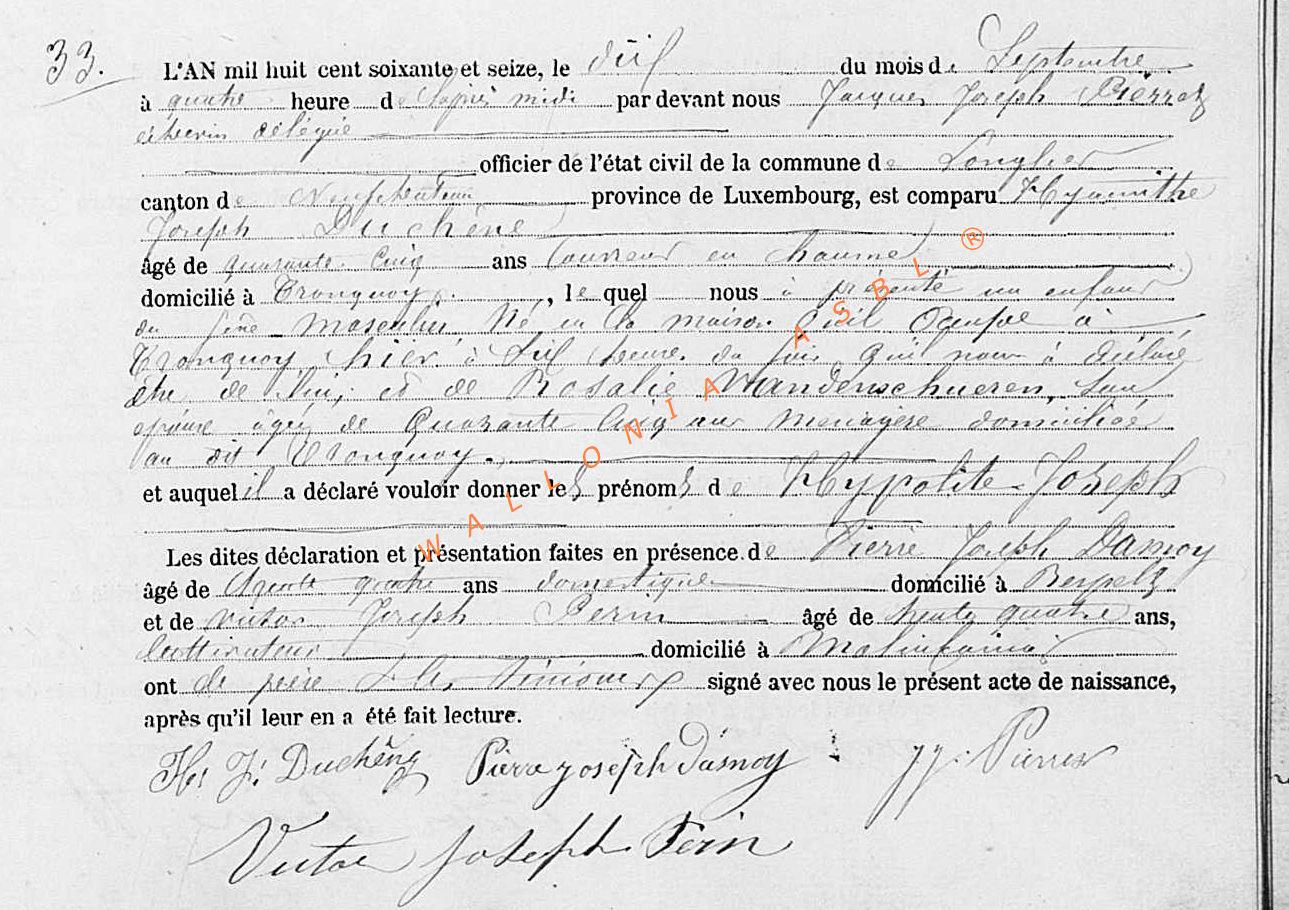 33.
L'AN mil huit cent soixante et seize, le dix du mois de Septembre
à quatre heure de l'après midi par devant nous Jacques Joseph Pierret
échevin délégué
officier de l'état civil de la commune de Longlier
canton de Neufchateau province de Luxembourg, est comparu Hyacinthe
Joseph Duchêne
âgé de quarante cinq ans Couvreur en chaume
domicilié à Tronquoy, le quel nous à présenté un enfant
du sexe masculin Né en la maison qu'il occupe à
Tronquoy hier à dix heure du soir qu'il nous à déclaré
être de lui, et de Rosalie Vandenschueren, son
épouse âgée de Quarante cinq ans menagère domiciliée
au dit Tronquoy.
et auquel il a déclaré vouloir donner les prénoms de Hypolite Joseph
Les dites déclaration et présentation faites en présence de Pierre Joseph Damoy
âgé de trente quatre ans domestique domicilié à
et de Victor Joseph Perin âgé de trente quatre ans,
domicilié à
ont le père & les témoins signé avec nous le présent acte de naissance,
après qu'il leur en a été fait lecture.
H. J. Duchêne Pierre joseph dasnoy JJ. Pierret
Victor joseph Perin
WALLONIA ASBL ®